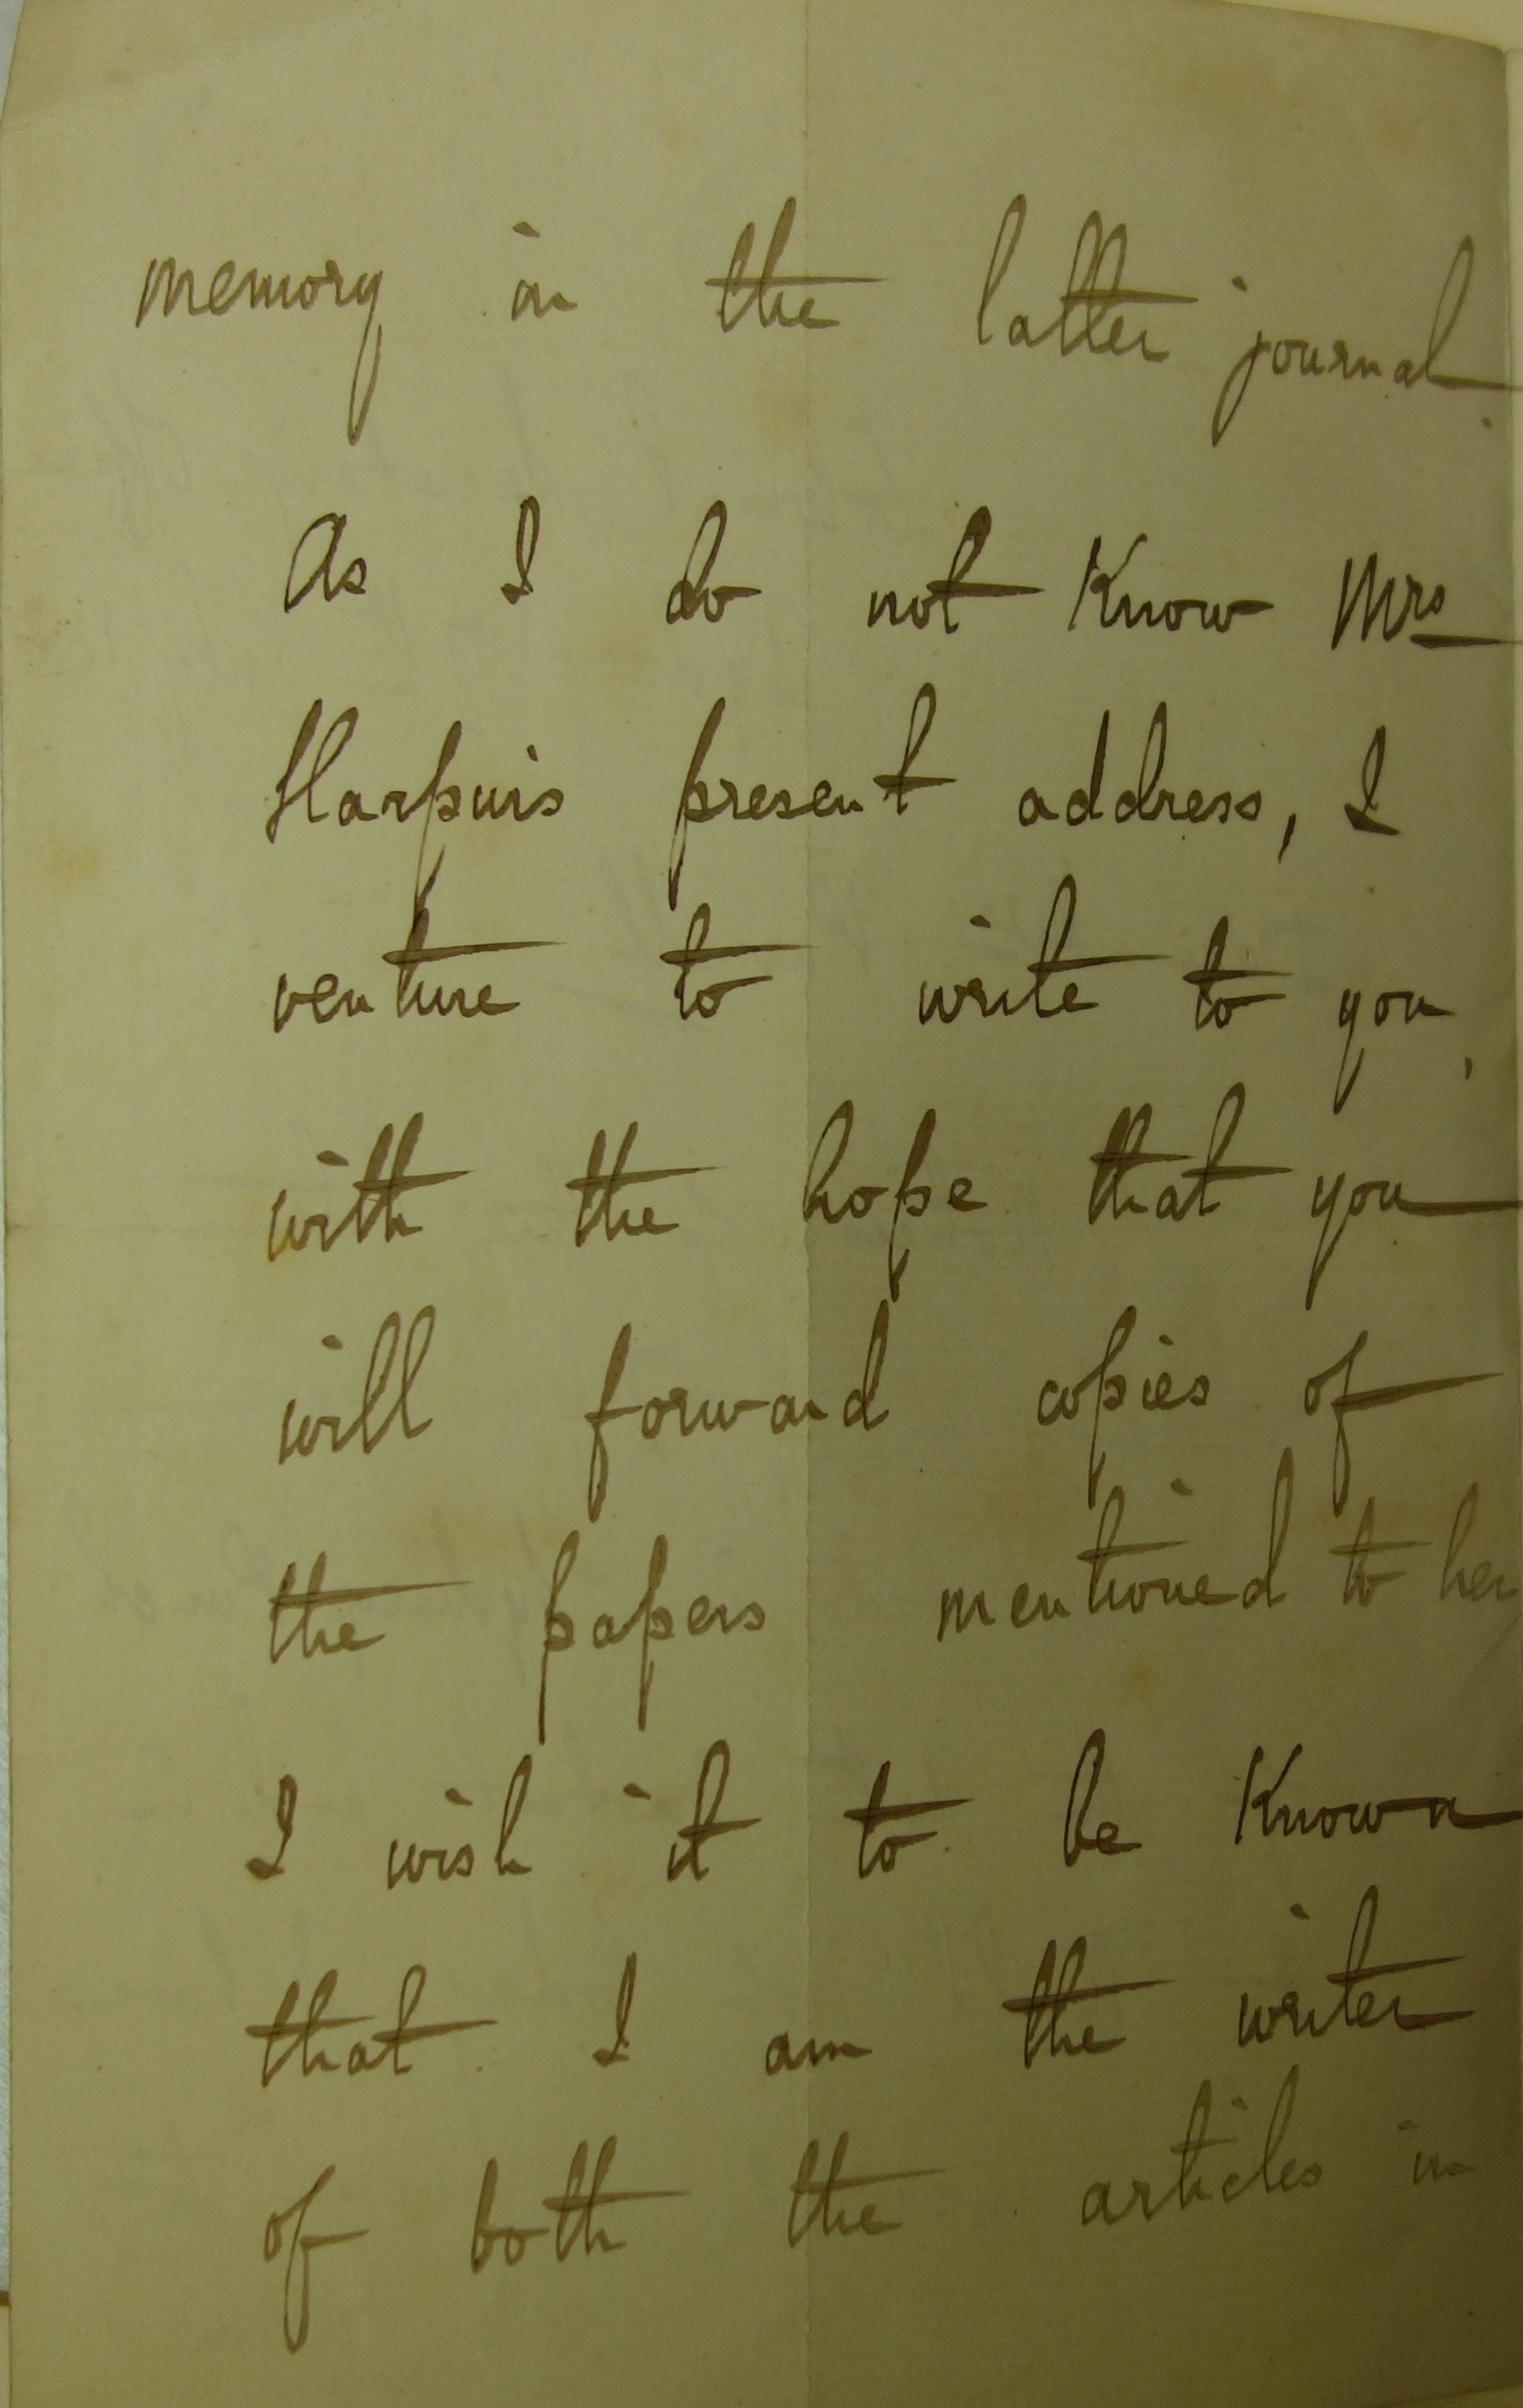 memory in the latter journal.
As I do not Know Mrs
Harpurs present address, I
venture to write to you,
with the hope that you
will forward copies of
the papers mentioned to her
I wish it to be Known
that I am the writer
of both the articles in